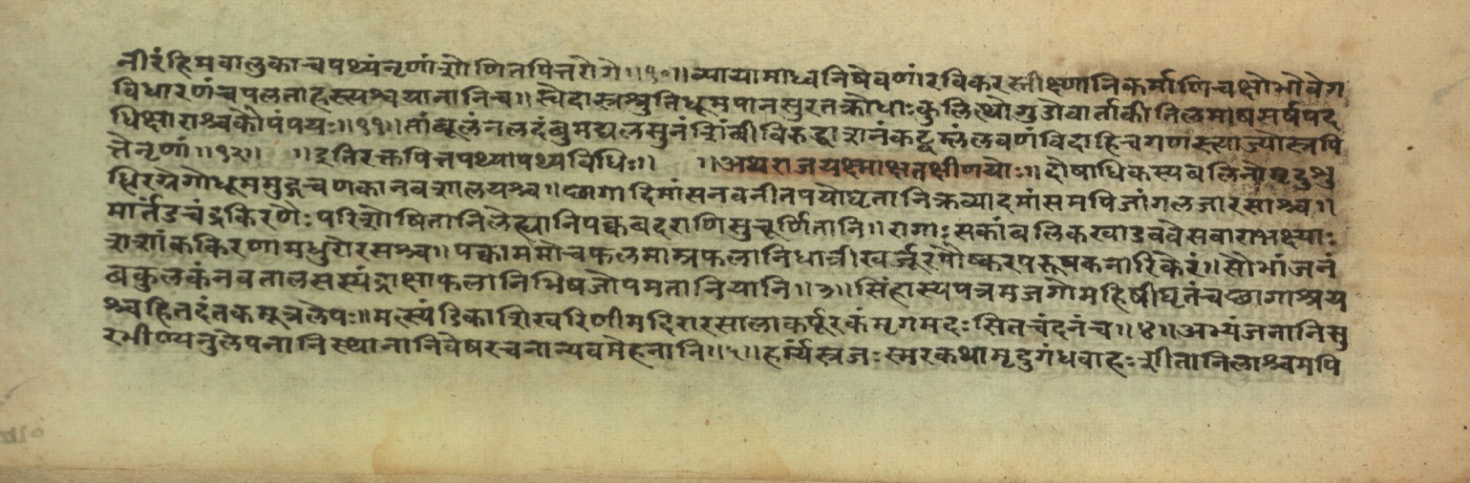 नीरंहिमवालुकाचपथ्यंनृणांशोणितपित्तरोगे॥१०॥व्यायामाध्वनिषेवणंरविकरस्तीक्ष्णानिकर्माणिचक्षोभोवेग
विधारणंचपलताहस्त्यश्वयानानिच॥स्वेदास्रश्रुतिधूमपानसुरतक्रोधाःकुलित्थोगुडोवार्ताकीतिलमाषसर्षपद
धिक्षाराश्चकौपंपयः॥११॥तांबूलंनलदंबुमद्यलसुनंशिंबीविरुद्धाशनंकट्वम्लंलवणंविदाहिचगणस्त्याज्योस्रपि
त्तेनृणां॥१२॥ ॥इतिरक्तपित्तपथ्यापथ्यविधिः॥ ॥अथराजयक्ष्माक्षतक्षीणयोः॥दोषाधिकस्यबलिनोमृदुशु
द्धिरग्रेगोधूममुद्गचणकानवशालयश्च॥छागादिमांसनवनीतपयोघृतानिक्रव्यादमांसमपिजांगलजारसाश्च॥
मार्तंडचंड्रकिरणैःपरिशोषितानिलेह्यानिपक्वबदराणिसुचूर्णितानि॥रागाःसकांबलिकखाडववेसवाराभक्ष्याः
शशांककिरणामधुरोरसश्च॥पक्वाममोचफलमाम्रफलानिधात्रीखर्जूरपौष्करपरूषकनारिकेरं॥सौभांजनं
बकुलकंनवतालसस्यंद्राक्षाफलानिभिषजोपमतानियानि॥३॥सिंहास्यपत्रमजगोमहिषीघृतंचछागाश्रय
श्चहितदंतकमूत्रलेपः॥मत्स्यंडिकाशिखरिणीमदिरारसालाकर्पूरकंमृगमदःसितचंदनंच॥४॥अभ्यंजनानिसु
रभीण्यनुलेपनानिस्थानानिवेषरचनान्यवमेहनानि॥५॥हर्म्यंस्रजःस्मरकथामृदुगंधवाहःशीतानिलाश्चमपि